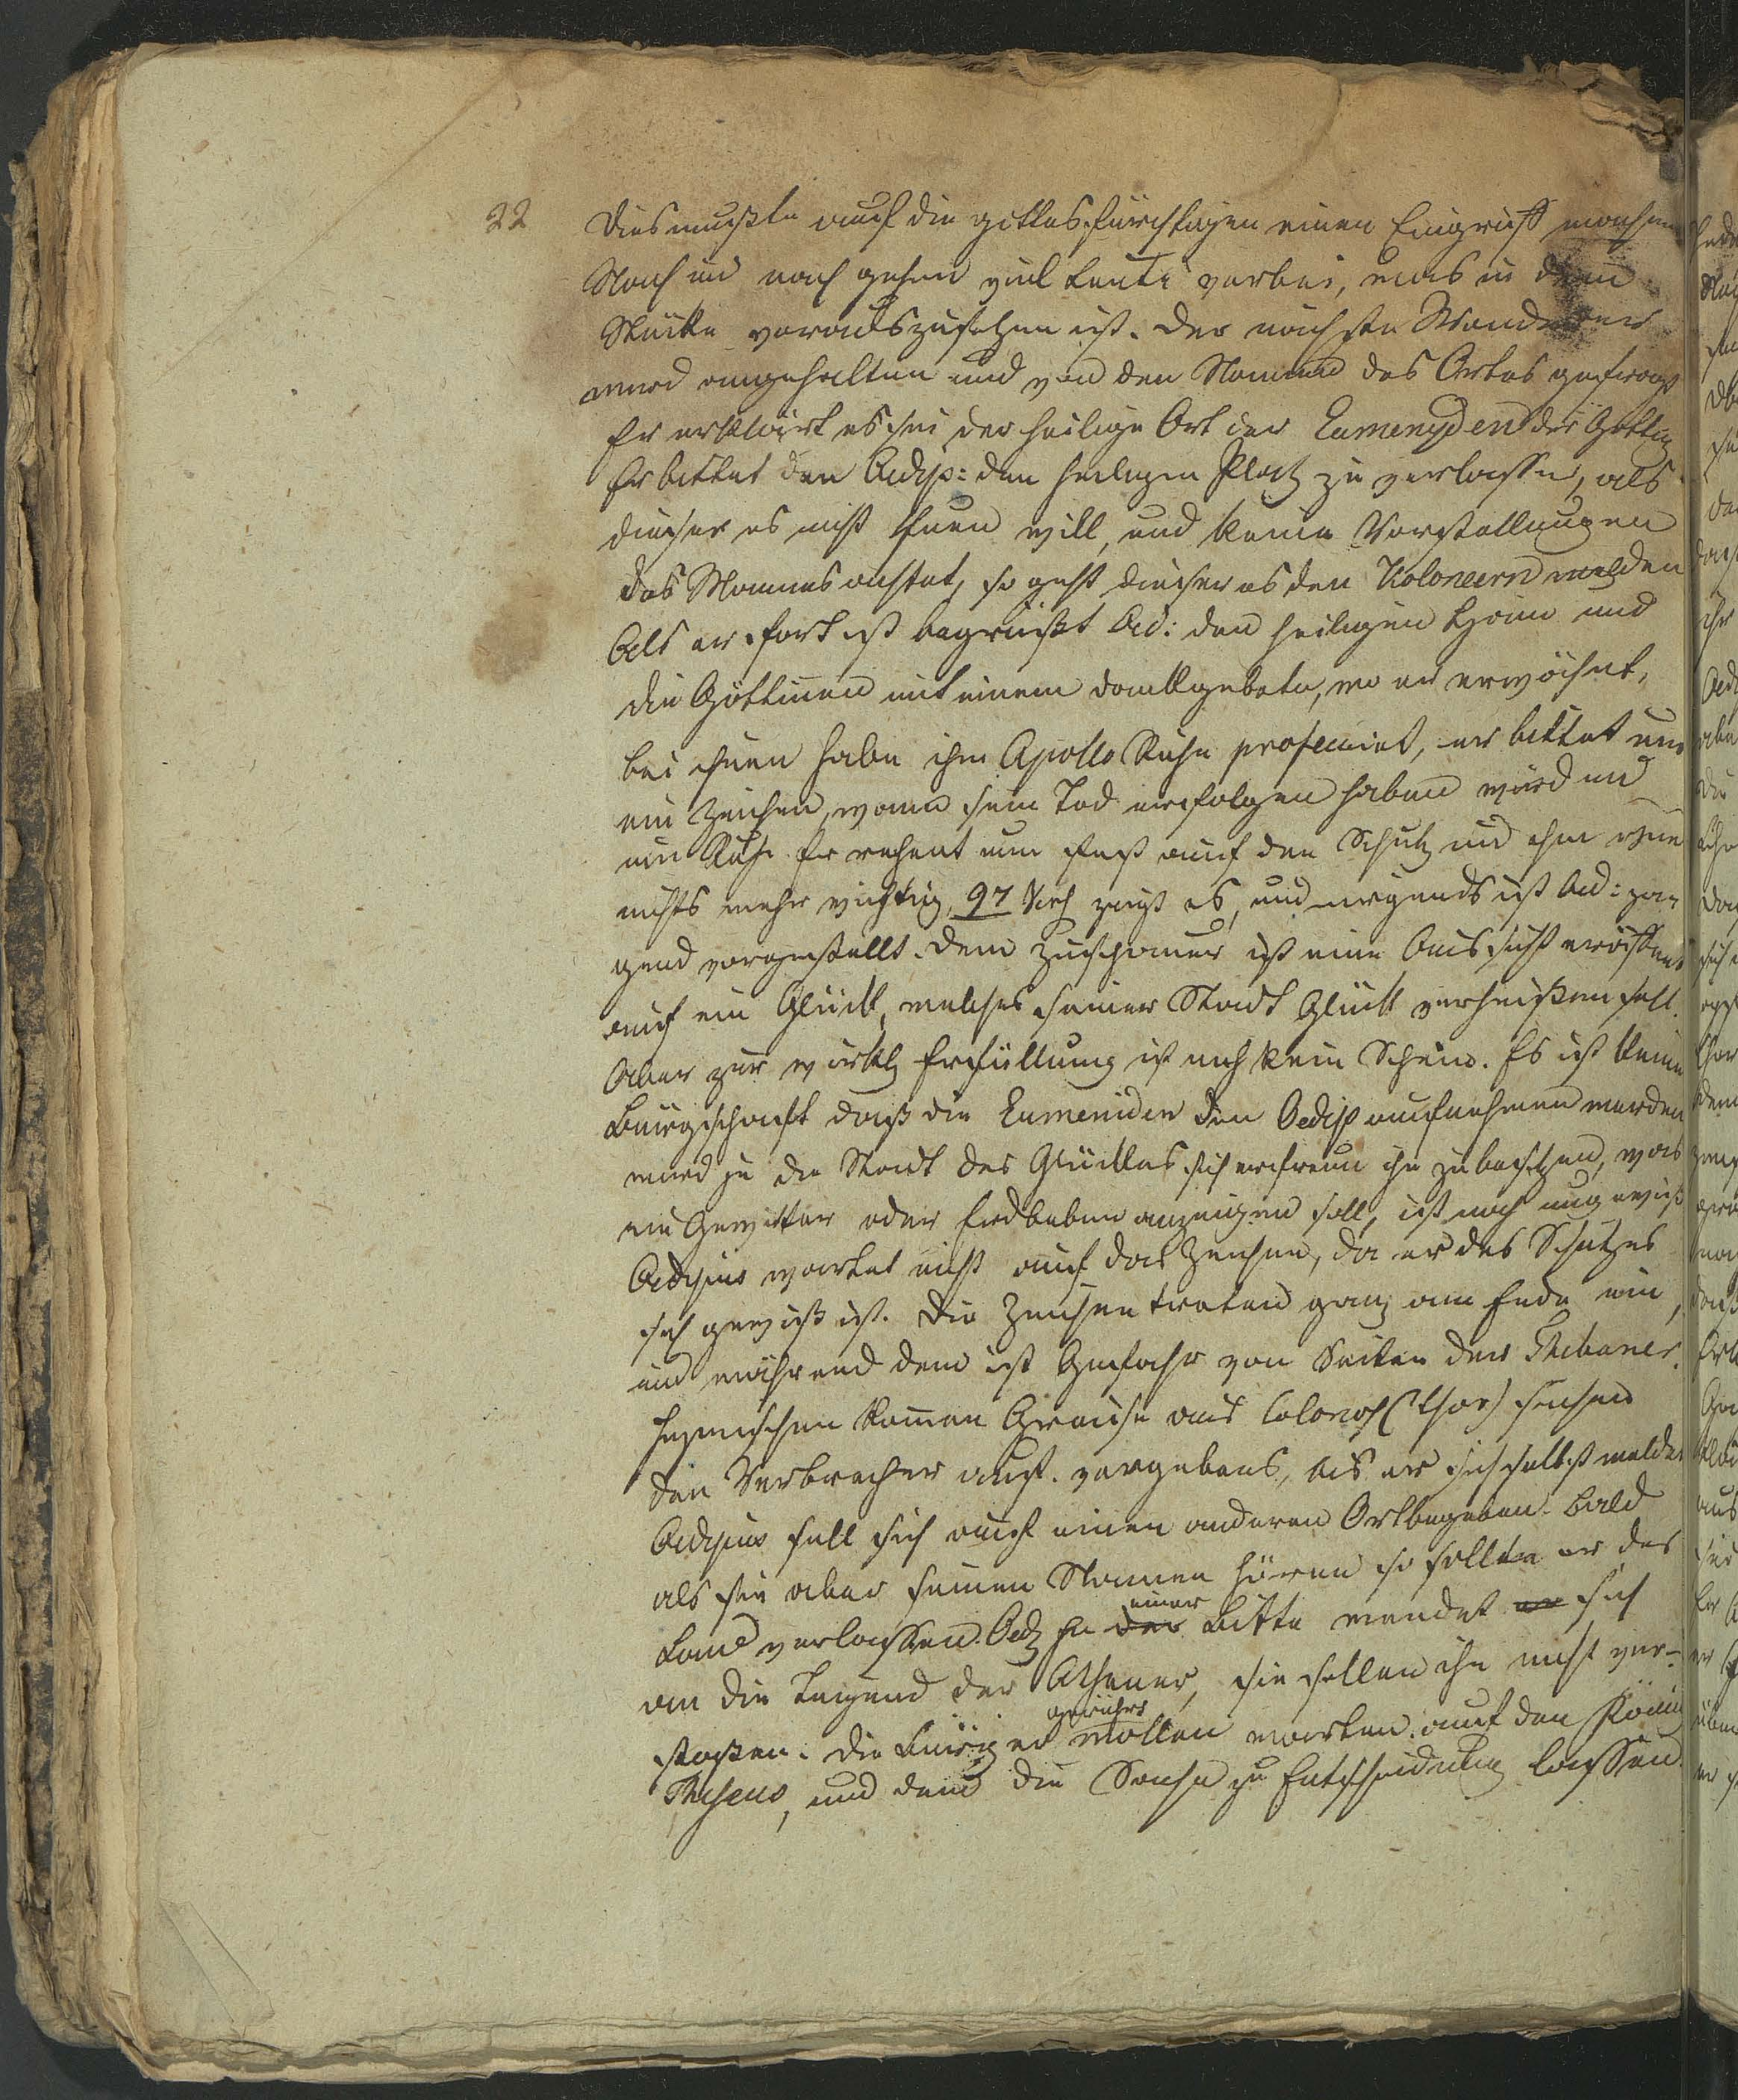 22
Dies mußte auf die gottesfürchtigen einen Eingriff machen
Nach und nach gehen viel Leute vorbei, was in dem
Stücke vorauszusehen ist. Der nächste Wanderer
wird angehalten und von den Namen des Ortes gefragt
Er erklärt es sei der heilige Ort der Eumenyden der Göttin
Er bittet den Oedip: den heiligen Platz zu verlassen, als
dieser es nicht thuen will, und keine Vorstellungen
des Mannes achtet, so geht dieser es den Koloneern melden
Als er fort ist begrüßt Oed: den heiligen Hain und
die Göttinnen mit einem Dankgebete, wo er erwähnt,
bei ihnen habe ihm Apollo Ruhe profezeiet, er bittet um
ein Zeichen, wann sein Tod erfolgen haben würd und
um Ruhe. Er rechnet nun fest auf den Schutz und ihm
nichts mehr wichtig, 97 Vers zeigt es, und nirgends ist Oed: za-
gend vorgestellt. Dem Zuschauer ist eine Aussicht eröffnet
auf ein Glück, welches seiner Stadt Glück verheißen soll.
Aber zur wirkl Erfüllung ist noch kein Schein. Es ist keine
Bürgschaft daß die Eumeniden den Oedip aufnehmen werden
wird je die Stadt des Glückes sich erfreun ihn zu besitzen, was
ein Gewitter oder Erdbeben anzeigen soll, ist noch ungewiß
Oedipus wartet nicht auf das Zeichen, da er des Schutzes
sich gewiß ist. Die Zeichen traten ganz am Ende ein,
und während dem ist Gefahr von Seiten der Thebaner.
Inzwischen kommen Greise aus Colonos (Chor) suchen
den Verbrecher auf. vergebens, bis er sich selbst meldet
Oedipus soll sich auf einen anderen Ort begeben. Bald
als sie aber seinen Namen hören so sollte er das
Land verlassen. Oed zu der einer Bitte wendet er sich
an die Tugend der Athener, sie sollen ihn nicht ver-
stoßen. Die Bürger gerührt wollen warten auf den König
Theseus, und dem die Sache zu Entscheidung lassen.